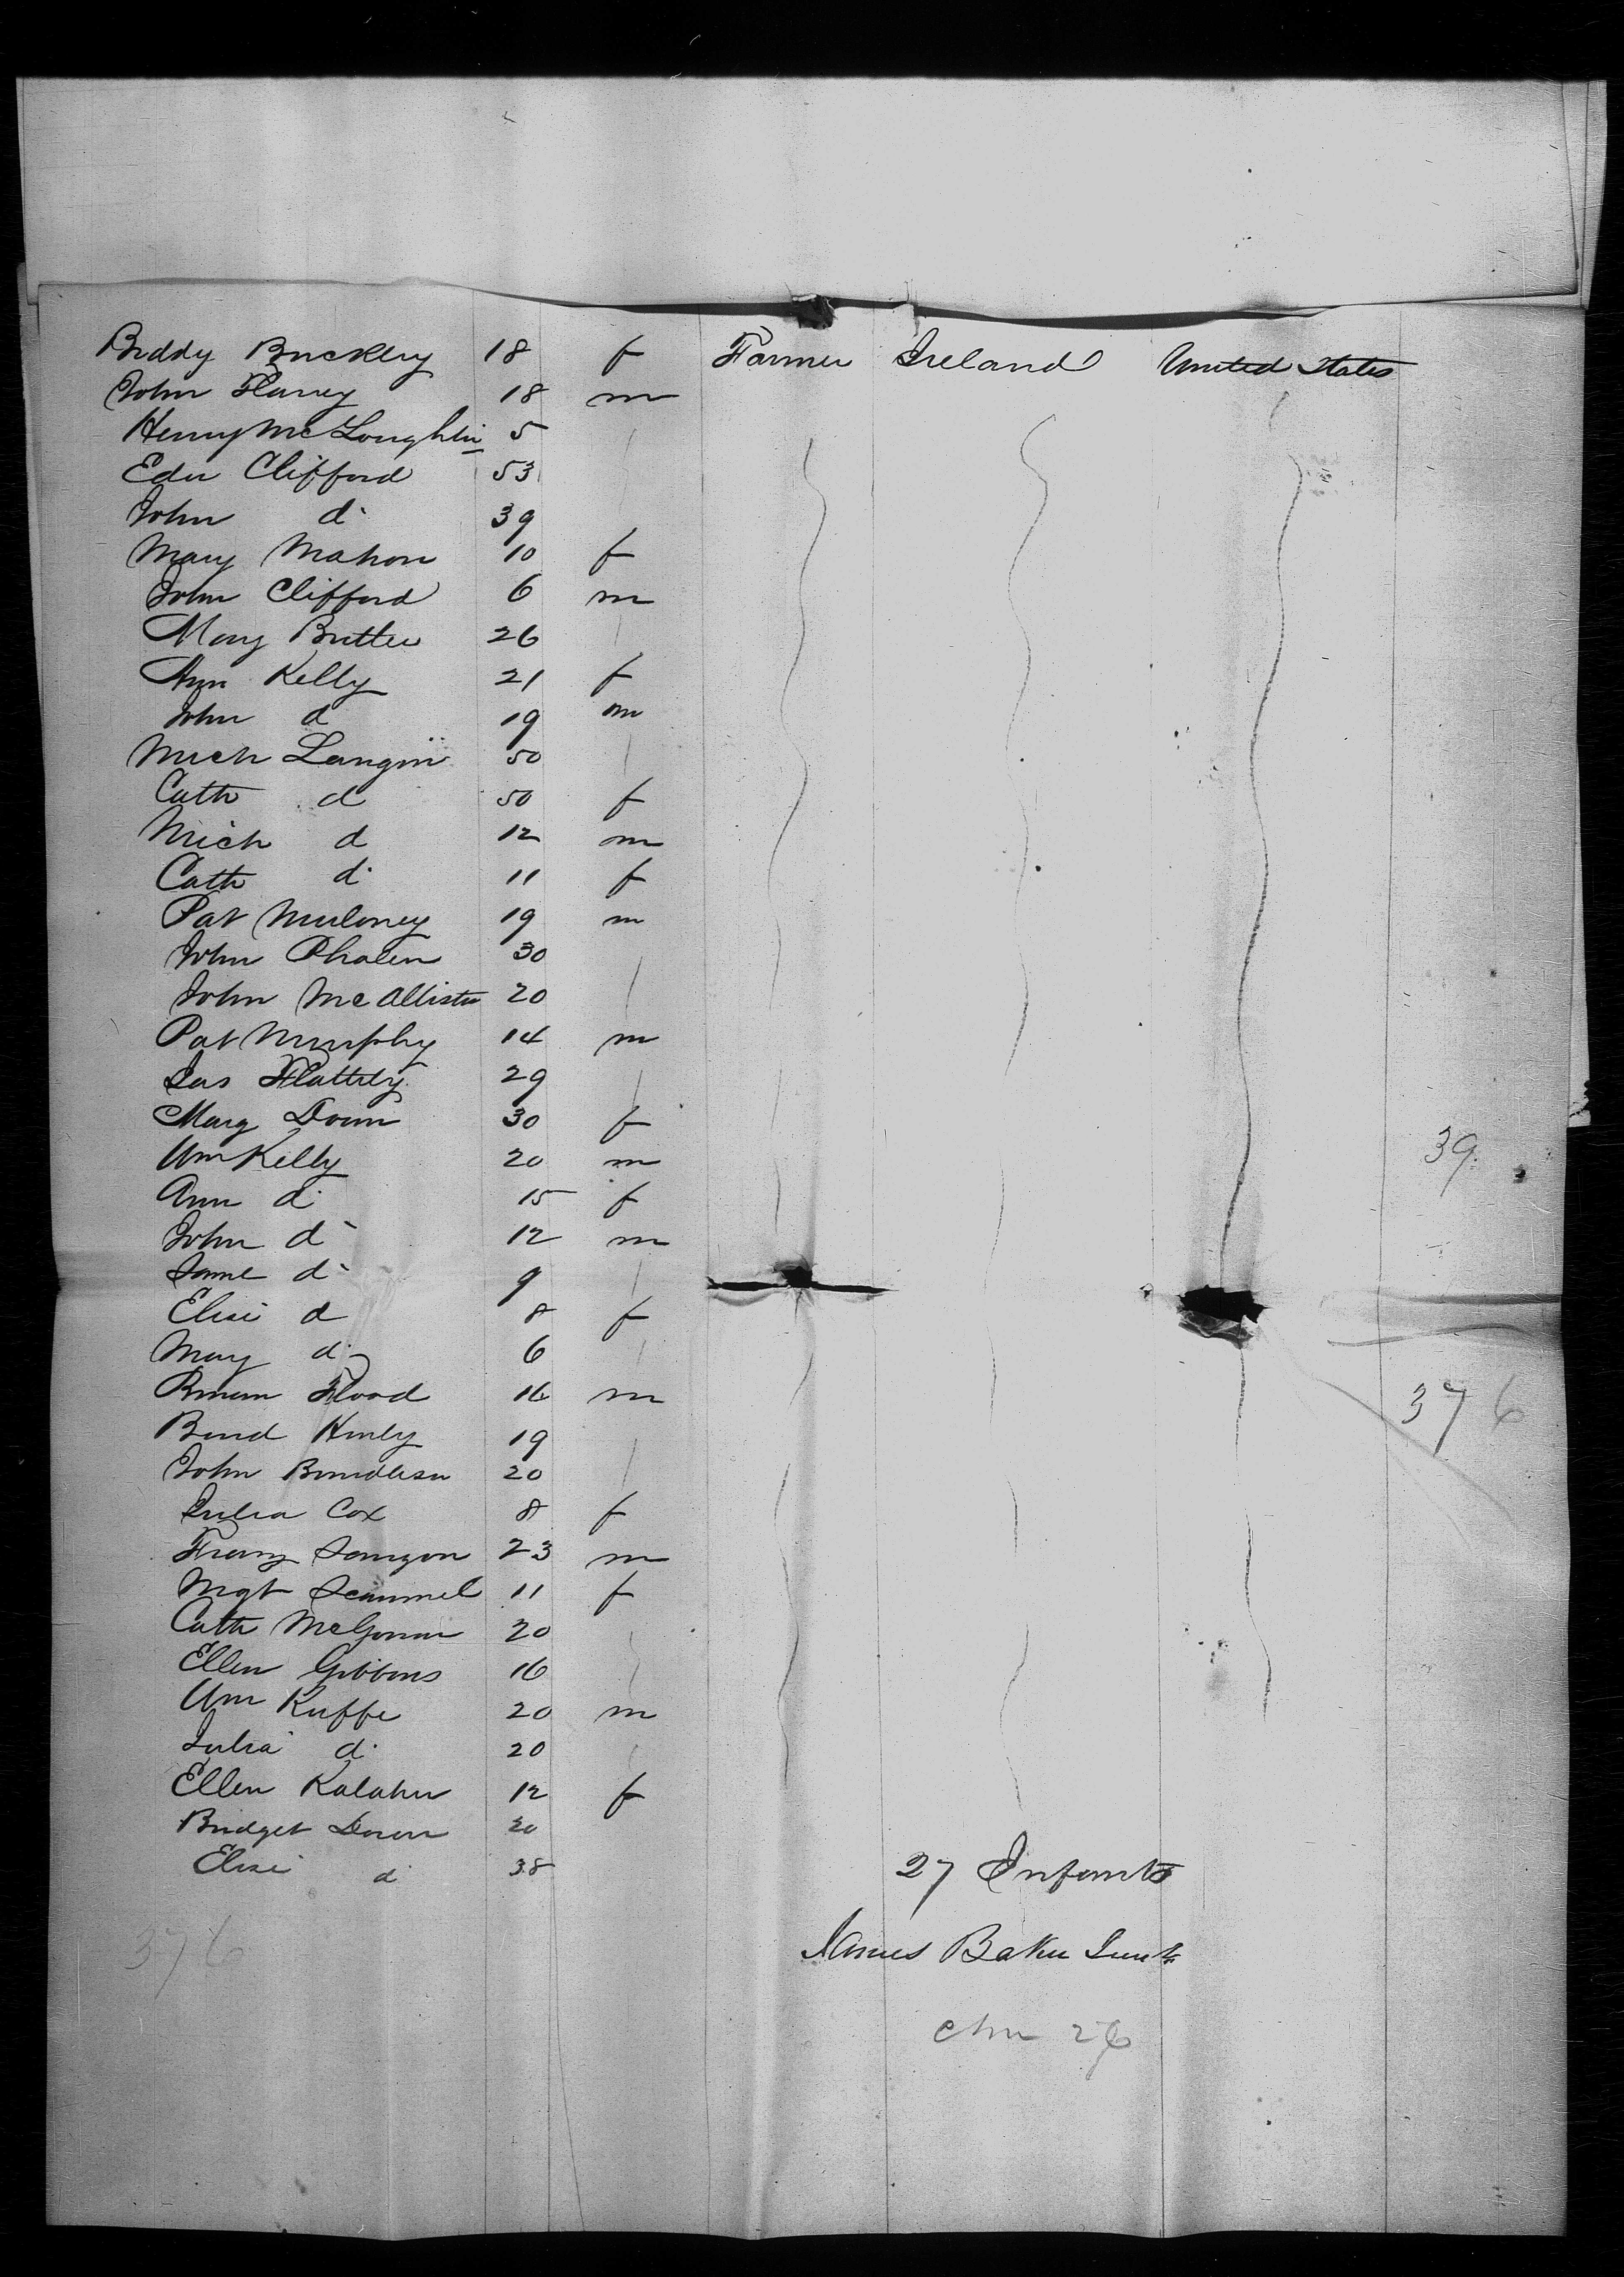 Biddy Buckley 18 f Farmer Ireland United States
John Flaney 18 m
Henry McLoughlin 5
Edw Clifford 53
John d 39
Mary Mahon 10 f
John Clifford 6 m
Mary Butler 26
Ann Kelly 21 f
John d 19 m
Mich Langin 50
Cath d 50 f
Mich d 12 m
Cath d 11 f
Pat Muloney 19 m
John Phalen 30
John McAllister 20
Pat Murphy 14 m
Jas Flattely 29
Marg Doun 30 f
Wm Kelly 20 m 39
Ann d 15 f
John d 12 m
Jame d 9
Elisi d 8 f
Mary d 6
Flood 16 m 376
19
John 20
Julia Cox 8 f
Franz 23 m
Mgt Scammel 11 f
Cath McGowan 20
Ellen Gibbons 16
Wm Kuffe 20 m
Julia d 20
Ellen Kalaher 12 f
Bridget Doran 20
Elisi d 38
27 Infants
376
James Baker